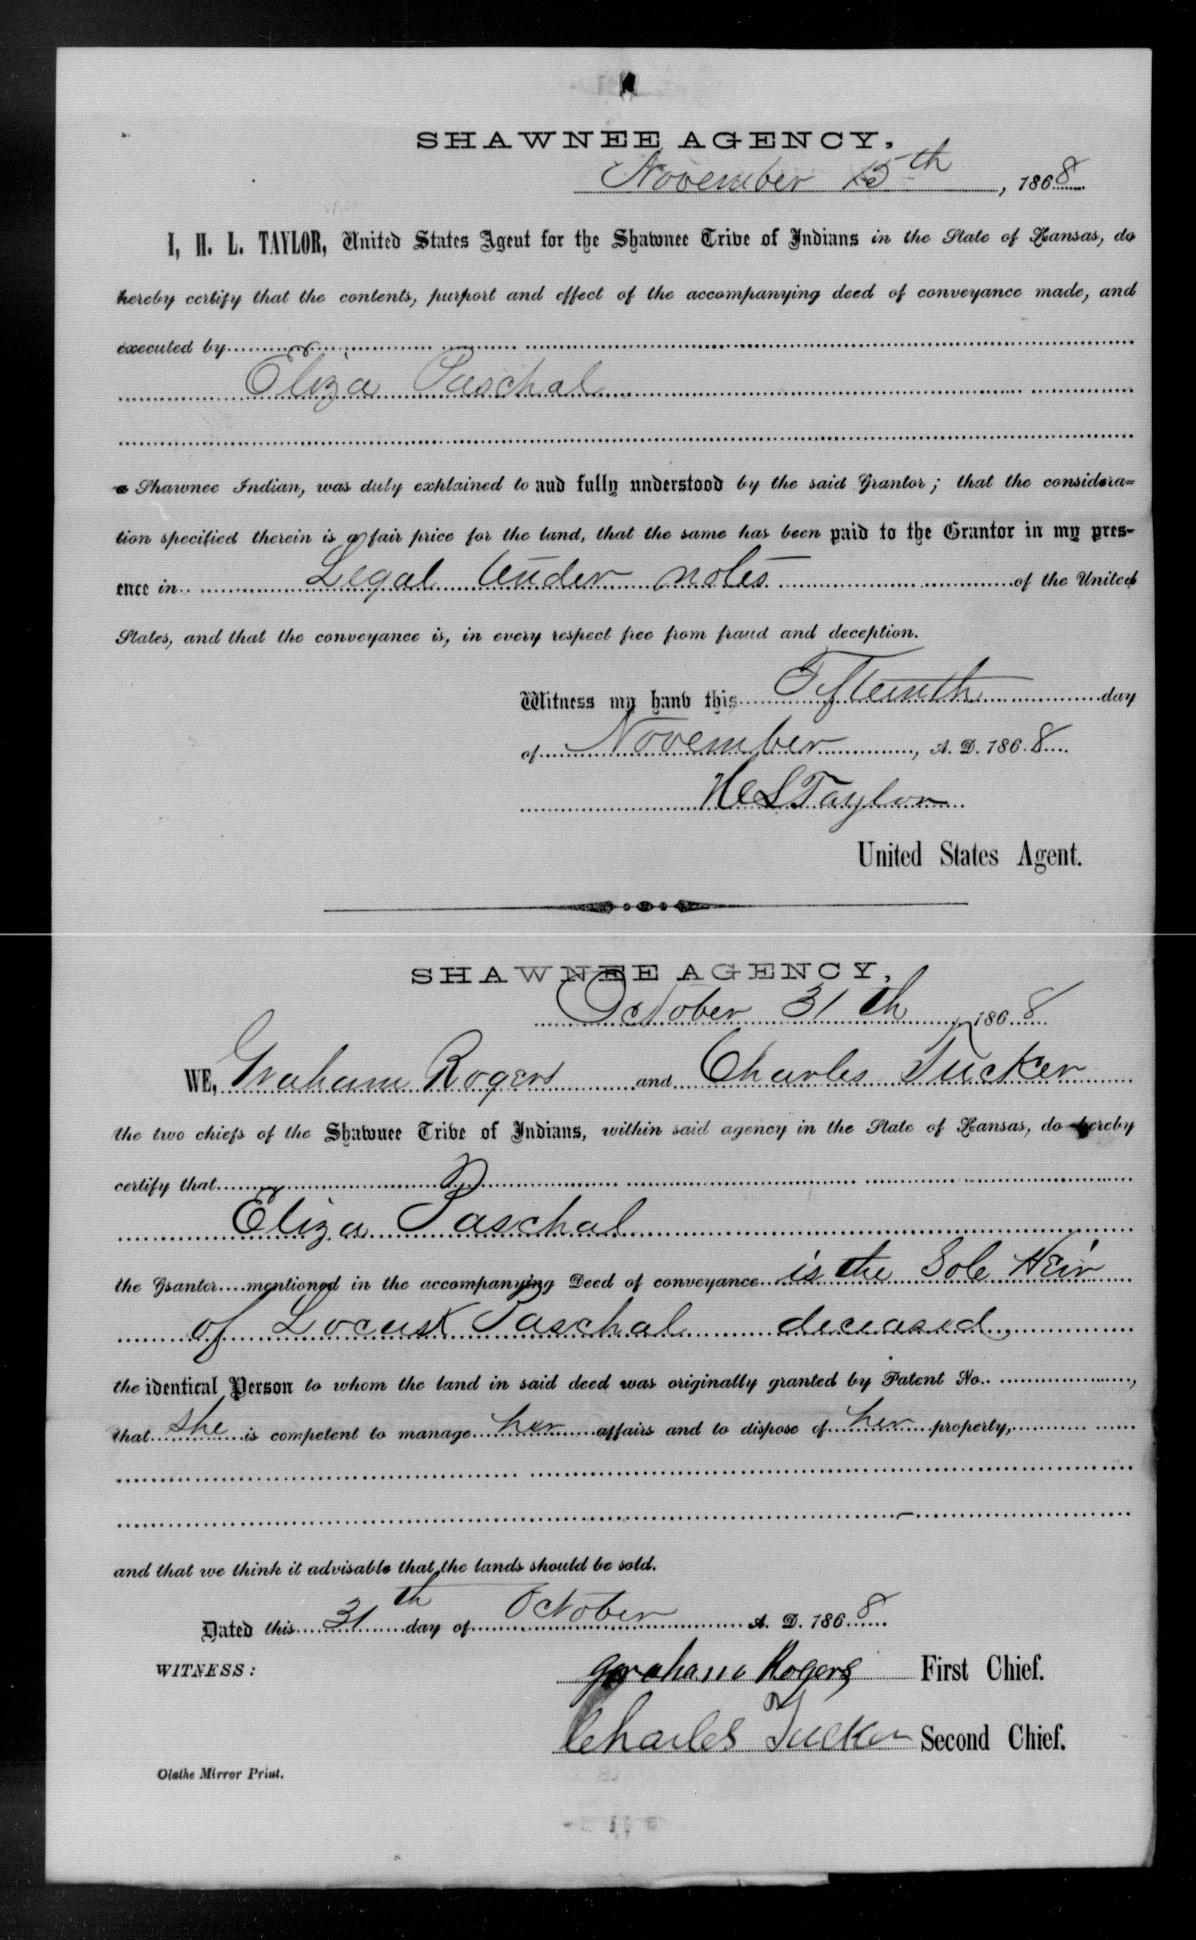 SHAWNEE AGENCY,
November 15th, 1868
I, H. L. TAYLOR, United States Agent for the Shawnee Tribe of Indians in the State of Kansas, do
hereby certify that the contents, purport and effect of the accompanying deed of conveyance made, and
executed by
Eliza Paschal
a Shawnee Indian, was duly explained to and fully understood by the said Grantor; that the considera=
tion specified therein is a fair price for the land, that the same has been paid to the Grantor in my pres-
ence in Legal tender notes of the United
States, and that the conveyance is, in every respect free from fraud and deception.
Witness my hand this Fifteenth day
of November, A. D. 1868
H L Taylor
United States Agent.
SHAWNEE AGENCY,
October 31th, 1868
WE, Graham Rogers and Charles Tucker
the two chiefs of the Shawnee Tribe of Indians, within said agency in the State of Kansas, do hereby
certify that
Eliza Paschal
the Grantor mentioned in the accompanying Deed of conveyance is the Sole Heir
of Locust Paschal deceased,
the identical Person to whom the land in said deed was originally granted by Patent No. ,
that she is competent to manage her affairs and to dispose of her property,
and that we think it advisable that the lands should be sold.
Dated this 31th day of October A. D. 1868
WITNESS:
Graham Rogers First Chief.
Charles Tucker Second Chief.
Olathe Mirror Print.